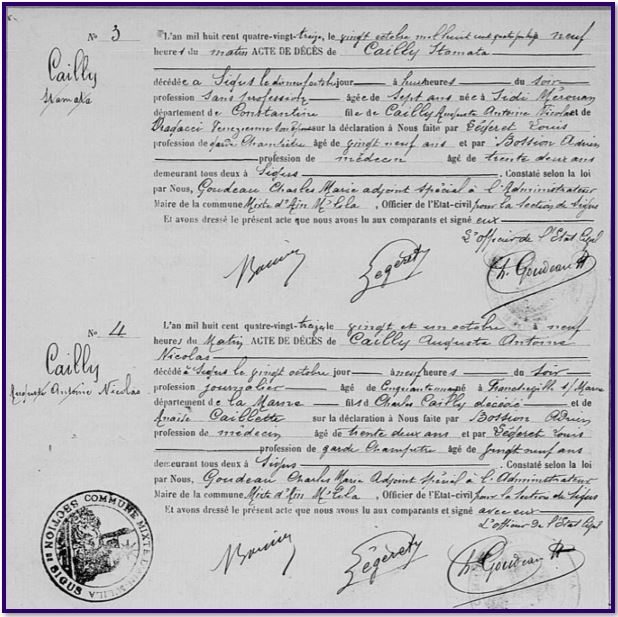 No 3
Cailly
Stamata
L'an mil huit cent quatre-vingt-treize, le vingt octobre mil huit cent neuf
heures du matin ACTE DE DÉCÈS de Cailly Stamata
décédée a Sigus le dix neuf octobre jour à huit heures du soir
profession Sans profession âgée de Sept ans née à Sidi Mérouan
département de Constantine fille de Cailly Auguste Antoine Nicolas et de
Dragacci sur la déclaration à Nous faite par Légeret Louis
profession de garde Champêtre âgé de vingt neuf ans et par Bossion Adrien
profession de médecin âgé de trente deux ans
demeurant tous deux à Sigus Constaté selon la loi
par Nous, Goudeau Charles Marie adjoint spécial à l'Administrateur
Maire de la commune Mixte d'Ain M'Lila, Officier de l'Etat-civil pour la section de Sigus
Et avons dressé le présent acte que nous avons lu aux comparants et signé eux
L'officier de l'Etat Civil
Légeret
Ch. Goudeau
No 4
Cailly
Auguste Antoine Nicolas
L'an mil huit cent quatre-vingt-treize, le vingt et un octobre à neuf
heures du Matin ACTE DE DÉCÈS de Cailly Auguste Antoine
Nicolas
décédé à Sigus le vingt octobre jour à neuf heures du soir
profession journalier âgé de Cinquante né à Francheville s/Marne
département de la Marne fils de Charles Cailly décédé et de
Anaïse Caillette sur la déclaration à Nous faite par Bossion Adrien
profession de médecin âgé de trente deux ans et par Légeret Louis
profession de garde Champêtre âgé de vingt neuf ans
demeurant tous deux à Sigus Constaté selon la loi
par Nous, Goudeau Charles Marie Adjoint Spécial à l'Administrateur
Maire de la commune Mixte d'Ain M'Lila, Officier de l'Etat-civil pour la section de Sigus
Et avons dressé le présent acte que nous avons lu aux comparants et signé avec eux
L'officier de l'Etat Civil
Légeret
Ch. Goudeau
COMMUNE MIXTE D'AIN M'LILA
SECTION DE SIGUS